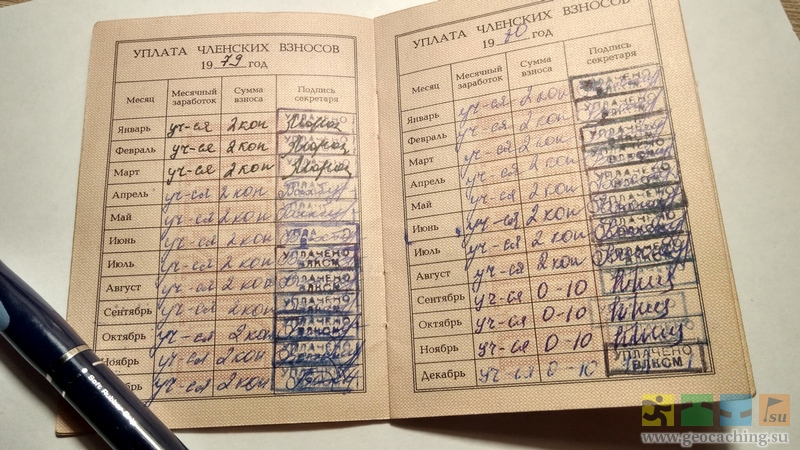 УПЛАТА ЧЛЕНСКИХ ВЗНОСОВ
19 79 ГОД
Месяц Месячный заработок Сумма взноса Подпись секретаря
Январь уч-ся 2 коп УПЛАЧЕНО
Февраль уч-ся 2 коп
Март уч-ся 2 коп
Апрель уч-ся 2 коп
Май уч-ся 2 коп
Июнь уч-ся 2 коп
Июль уч-ся 2 коп УПЛАЧЕНО ВЛКСМ
Август уч-ся 2 коп
Сентябрь уч-ся 2 коп УПЛАЧЕНО
Октябрь уч-ся 2 коп
Ноябрь уч-ся 2 коп
уч-ся 2 коп
УПЛАТА ЧЛЕНСКИХ ВЗНОСОВ
19 ГОД
Месяц Месячный заработок Сумма взноса Подпись секретаря
Январь уч-ся 2 коп УПЛАЧЕНО
Февраль уч-ся 2 коп УПЛАЧЕНО
Март уч-ся 2 коп УПЛАЧЕНО
Апрель уч-ся 2 коп
Май уч-ся 2 коп
Июнь уч-ся 2 коп
Июль уч-ся 2 коп
Август уч-ся 2 коп
Сентябрь уч-ся 0-10
Октябрь уч-ся 0-10
Ноябрь уч-ся 0-10
Декабрь уч-ся 0-10 УПЛАЧЕНО ВЛКСМ
.su
www.geocaching.su